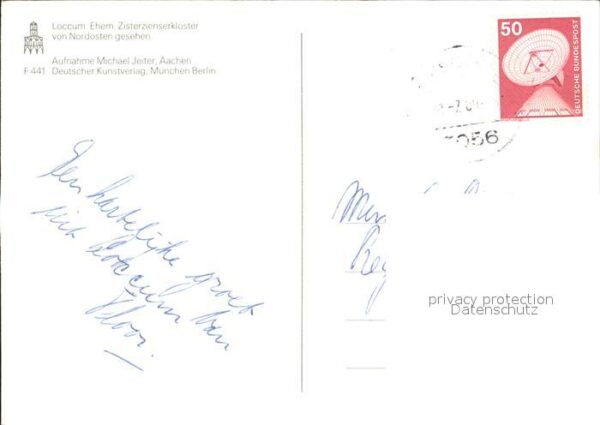 Loccum. Ehem. Zisterzienserkloster
von Nordosten gesehen
Aufnahme Michael Jeiter, Aachen
F 441 Deutscher Kunstverlag, München Berlin
50
DEUTSCHE BUNDESPOST
3056
Een hartelijke groet
uit Loccum van
privacy protection
Datenschutz